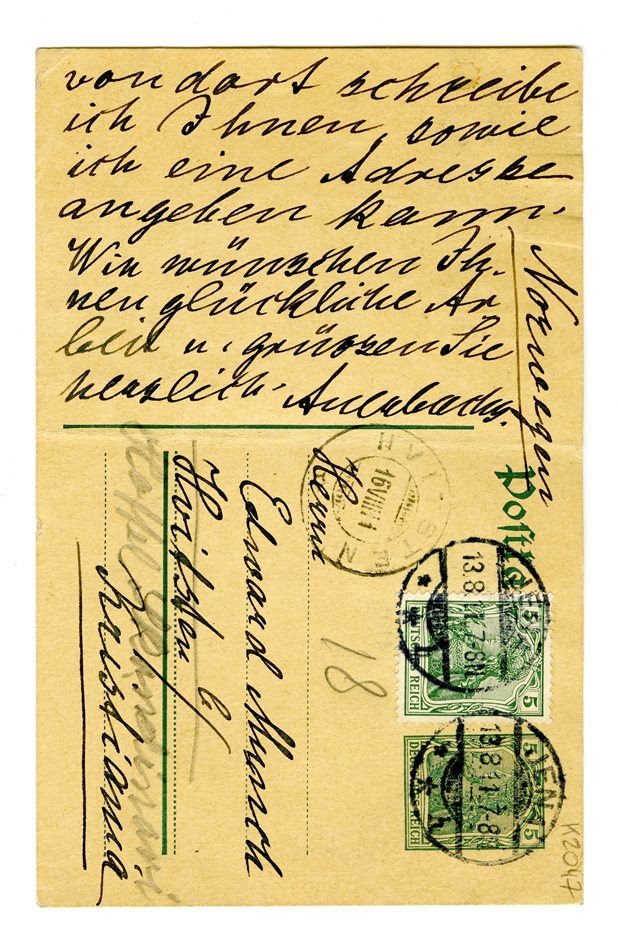 von dort schreibe
ich Ihnen, sowie
ich eine Adresse
angeben kann.
Wir wünschen Ih-
nen glückliche Ar
beit u. grüssen Sie
herzlich. Auerbachs.
Norwegen
Postk
Herrn
Edvard Munch
Hvitsten
Kristiania
HVITSTEN
16 VIII 11
18
JENA
13.8.11.7-8N
DEUTSCHES REICH
5
5
JENA
13.8.11.7-8N
DEUTSCHES REICH
5
5
K2047